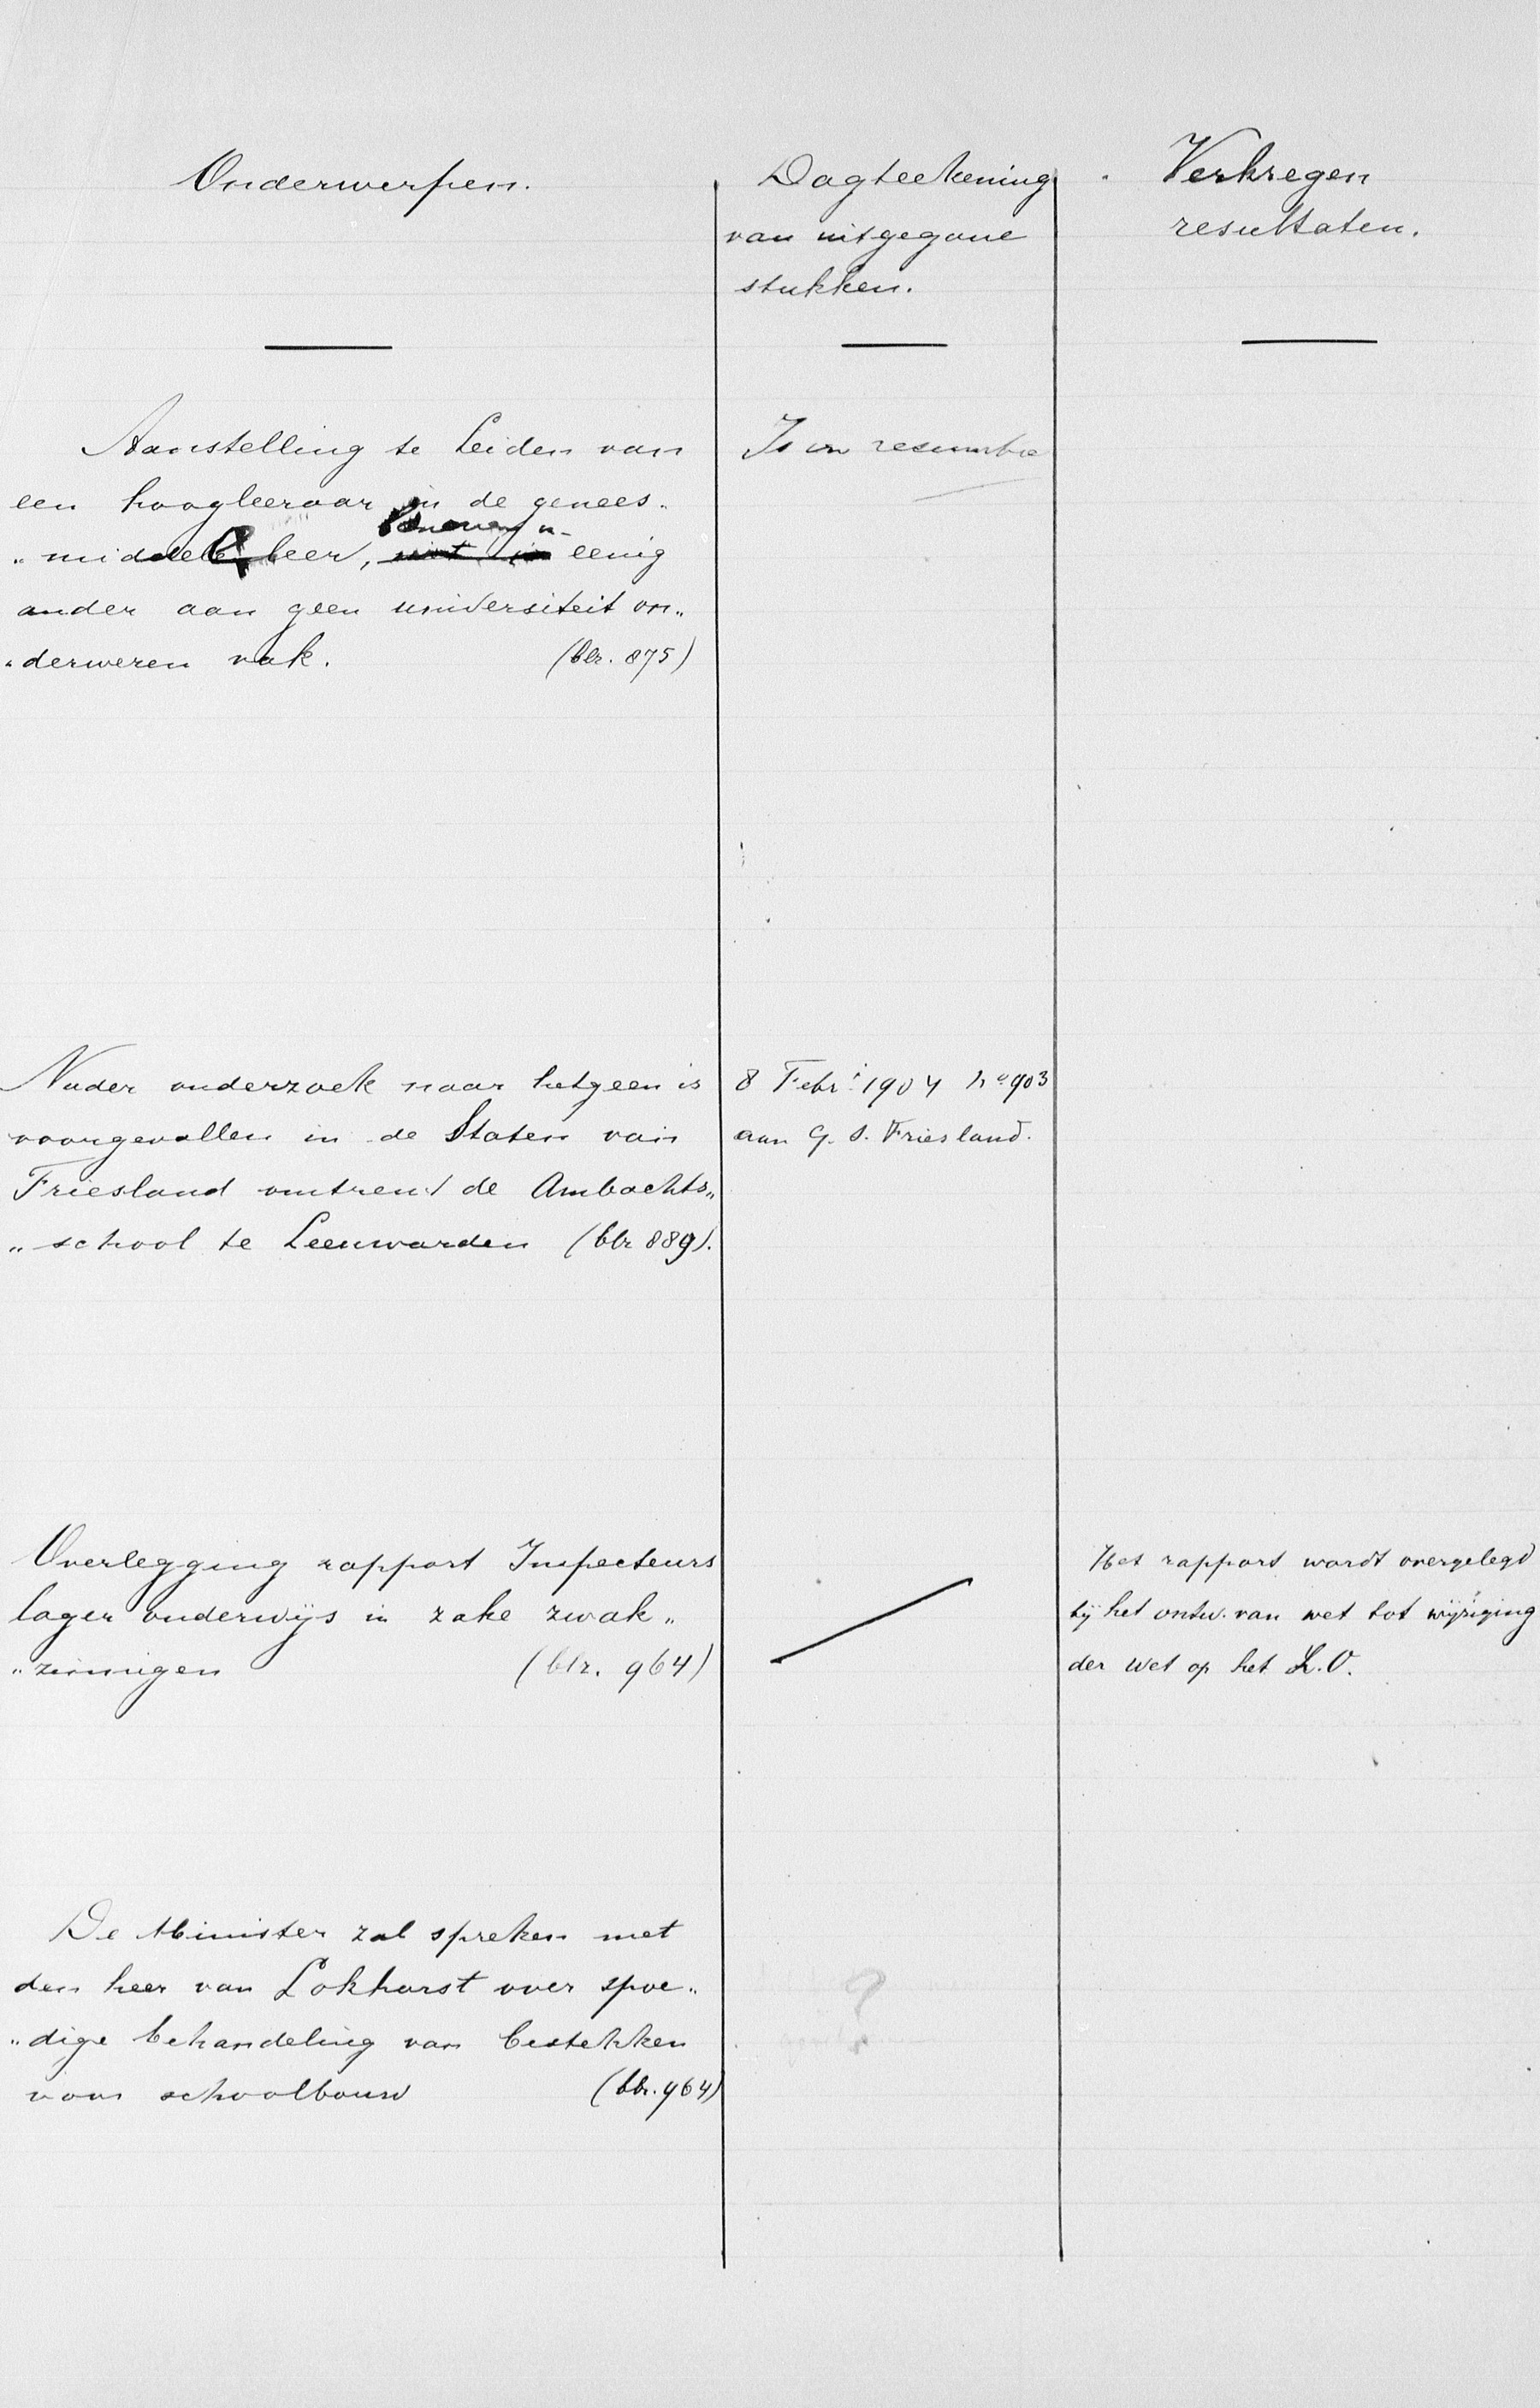 Onderwerpen.
Dagteekening
van uitgegane
stukken.
Verkregen
resultaten.
Aanstelling te Leiden van
een hoogleeraar in de genees„
„middelleer, eenig
ander aan geen universiteit on„
„derweren vak. (blz. 875)
Is in
Nader onderzoek naar hetgeen is
voorgevallen in de Staten van
Friesland omtrent de Ambachts„
„school te Leeuwarden (blz 889).
8 Febri: 1904 no 903
aan G. S. Friesland.
Overlegging rapport Inspecteurs
lager onderwijs in zake zwak„
„zinnigen (blz. 964)
Het rapport wordt overgelegd
bij het ontw. van wet tot wijziging
der wet op het L.O.
De Minister zal spreken met
den heer van Lokhorst over spoe„
„dige behandeling van bestekken
voor schoolbouw (blz. 964)
?